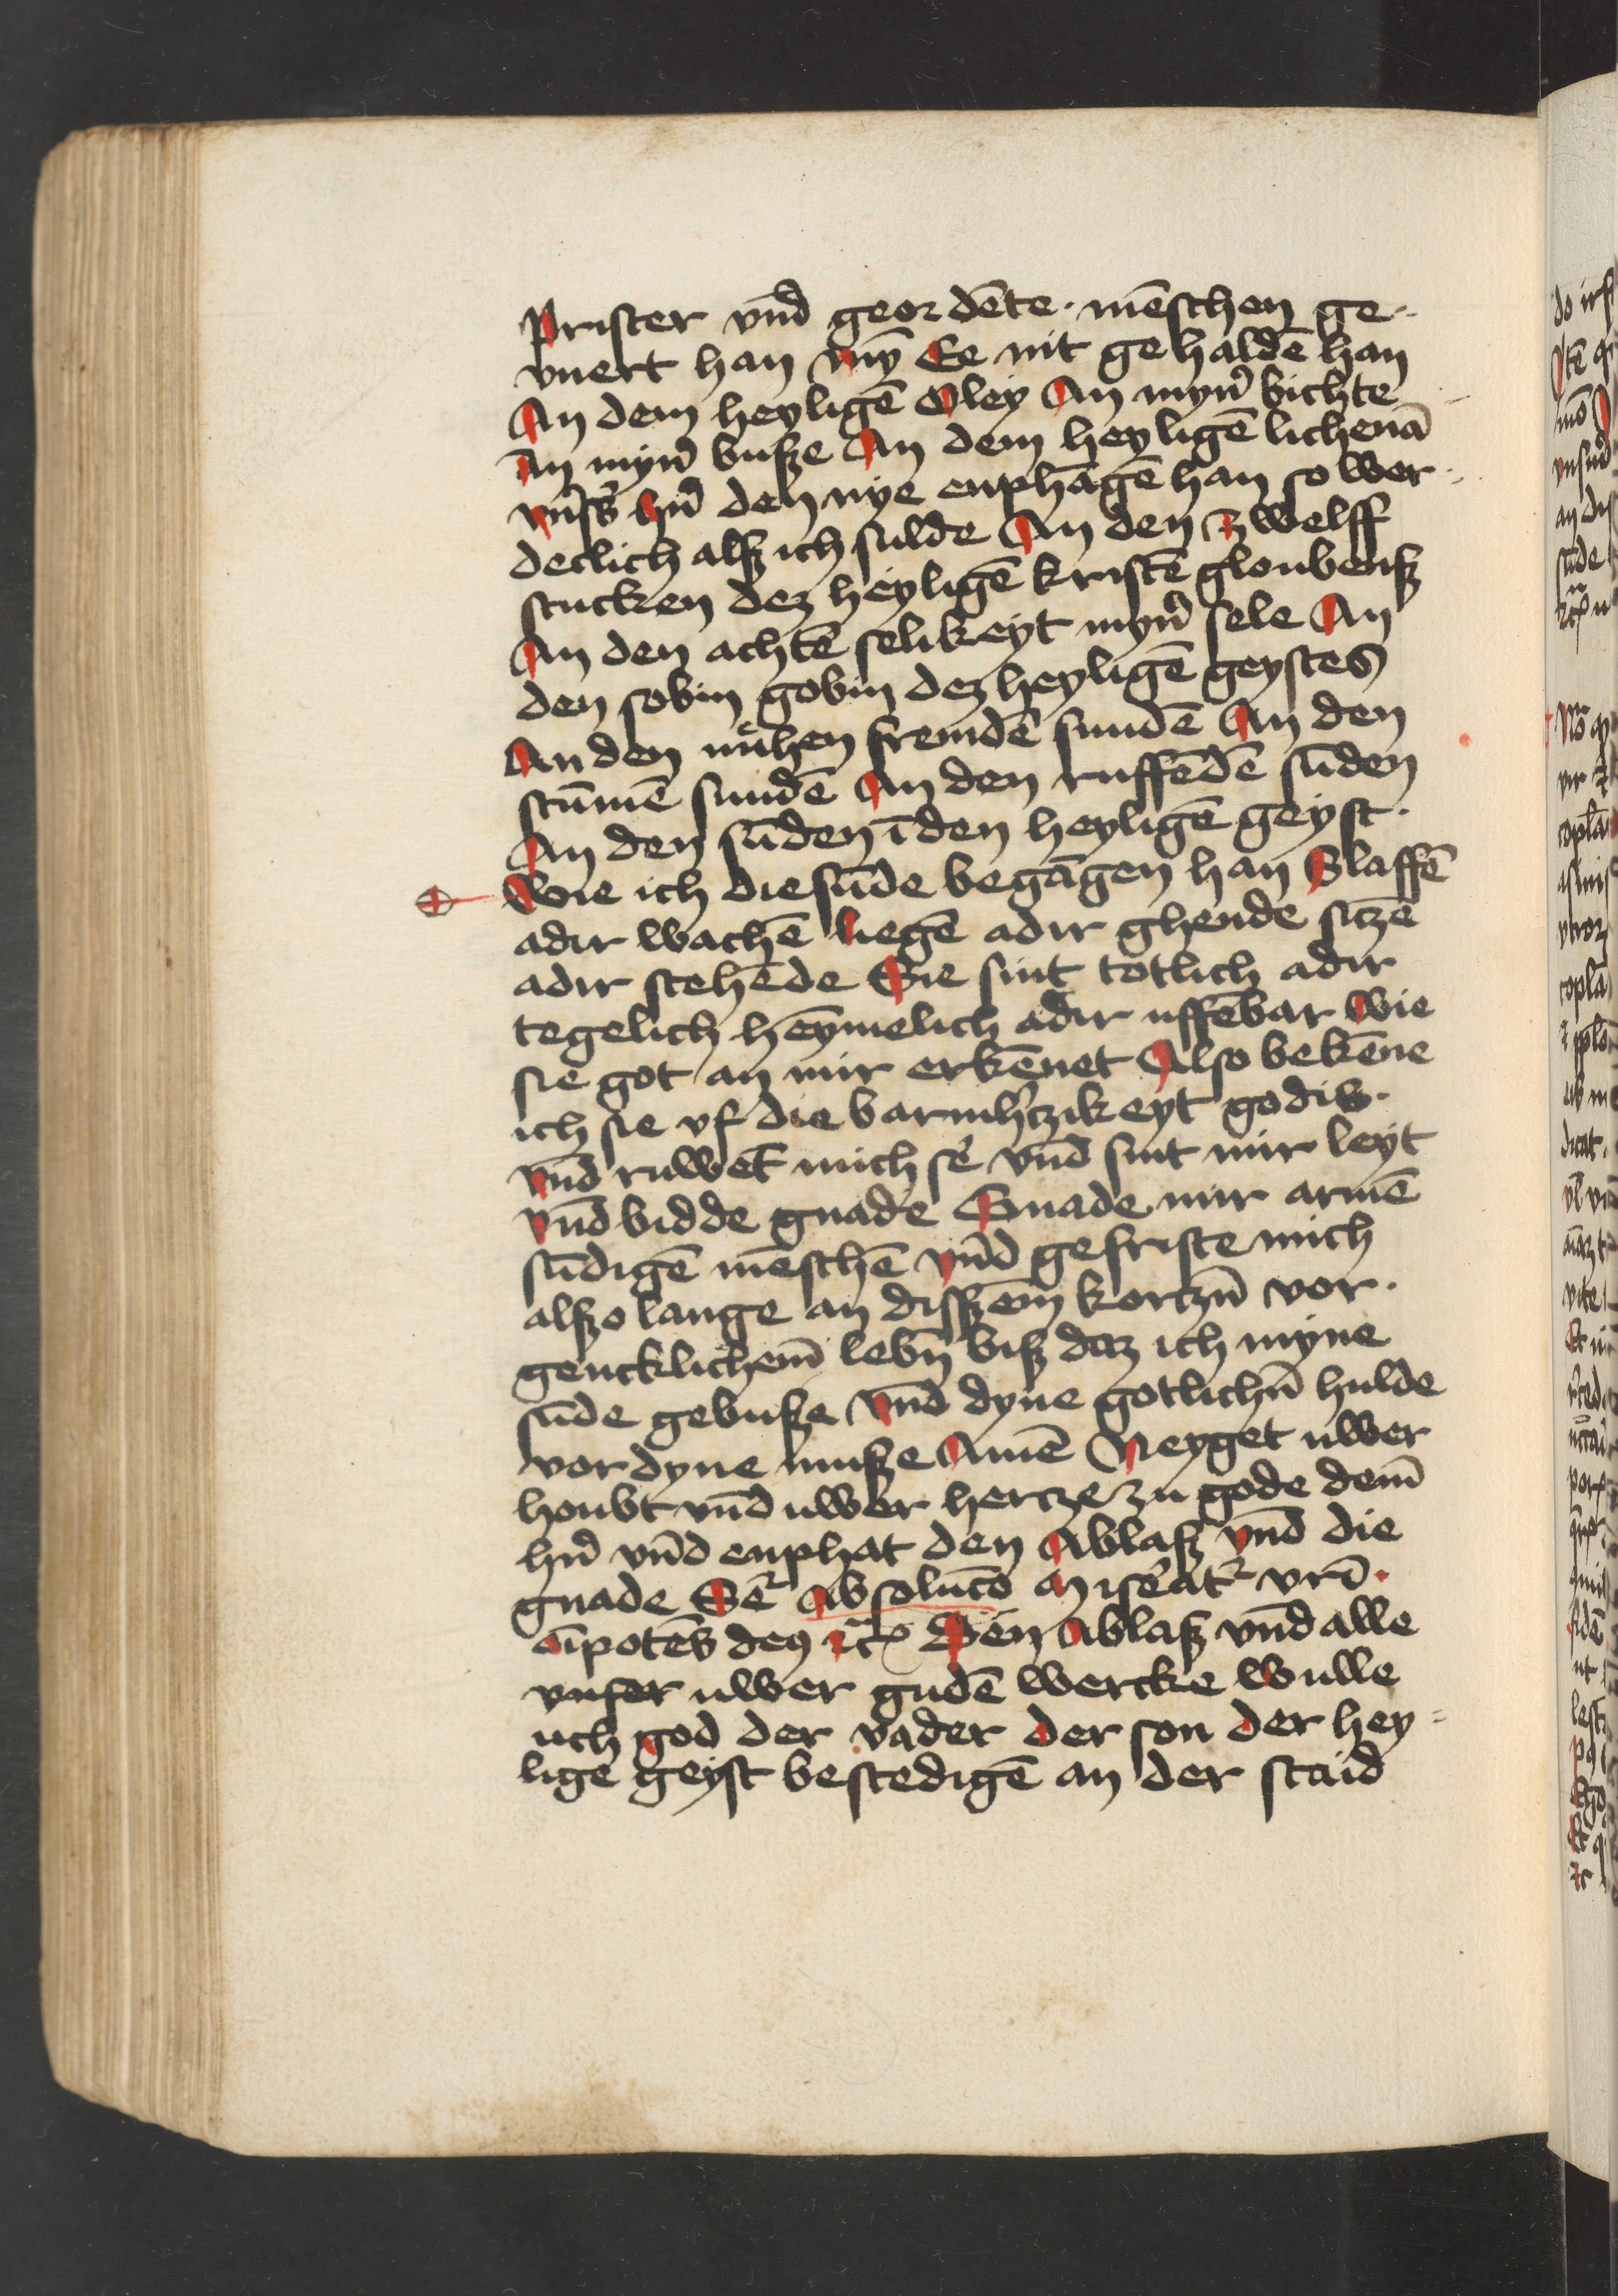 Prister vnd̄ geordēte · mēschen ge-
vnert han myn̄ Ee nit gehaldē han
An dem heyligē Oley An myn̄ bichte
An myn̄ busze An dem heyligē lichenā
vns̄ß hn̄ den nye enphāgē han so wer-
declich alsz ich sulde An den zwelff
stucken dez heyligē kristē gloubensz
An den achtē selikeyt myn̄ sele An
den sobin gobin dez heyligē geystes
An den nűhen fremdē sundē An den
stūmē sundē An den ruffēdē sūden
An den sūden ī den heyligē geyst ·
Wie ich die sūde begāgen han Slaffē
adir wachē liegē adir ghende sitzē
adir stehēde Sie sint totlich adir
tegelich hēymelich adir uffēbar Wie
sie got an mir erkēnet Also bekēne
ich sie vf die barmh̄tzikeyt godis ·
vnd̄ ruwet̄ mich sē vnd̄ sint mir leyt
vnd̄ bidde gnade Gnade mir armē
sūdigē mēschē vnd̄ gefriste mich
alszo lange an disszem̄ kortzn̄ vor-
gencklichem̄ lebn̄ bisz daz ich myne
sūde gebusze vnd̄ dyne gotlichn̄ hulde
vordyne musze Amē Neyget uwer
houbt vnd̄ uwer hertze zu gode dem̄
hn̄ vnd̄ enphat den Ablasz vnd̄ die
gnade Sē Absolutō Miseāt vrī ·
ōīpotēs deꝰ ꝛc̄ Den Ablasz vnd̄ alle
vnser uwer gudē wercke wulle
uch god der vader der son der hey-
lige geyst bestedigē an der staid